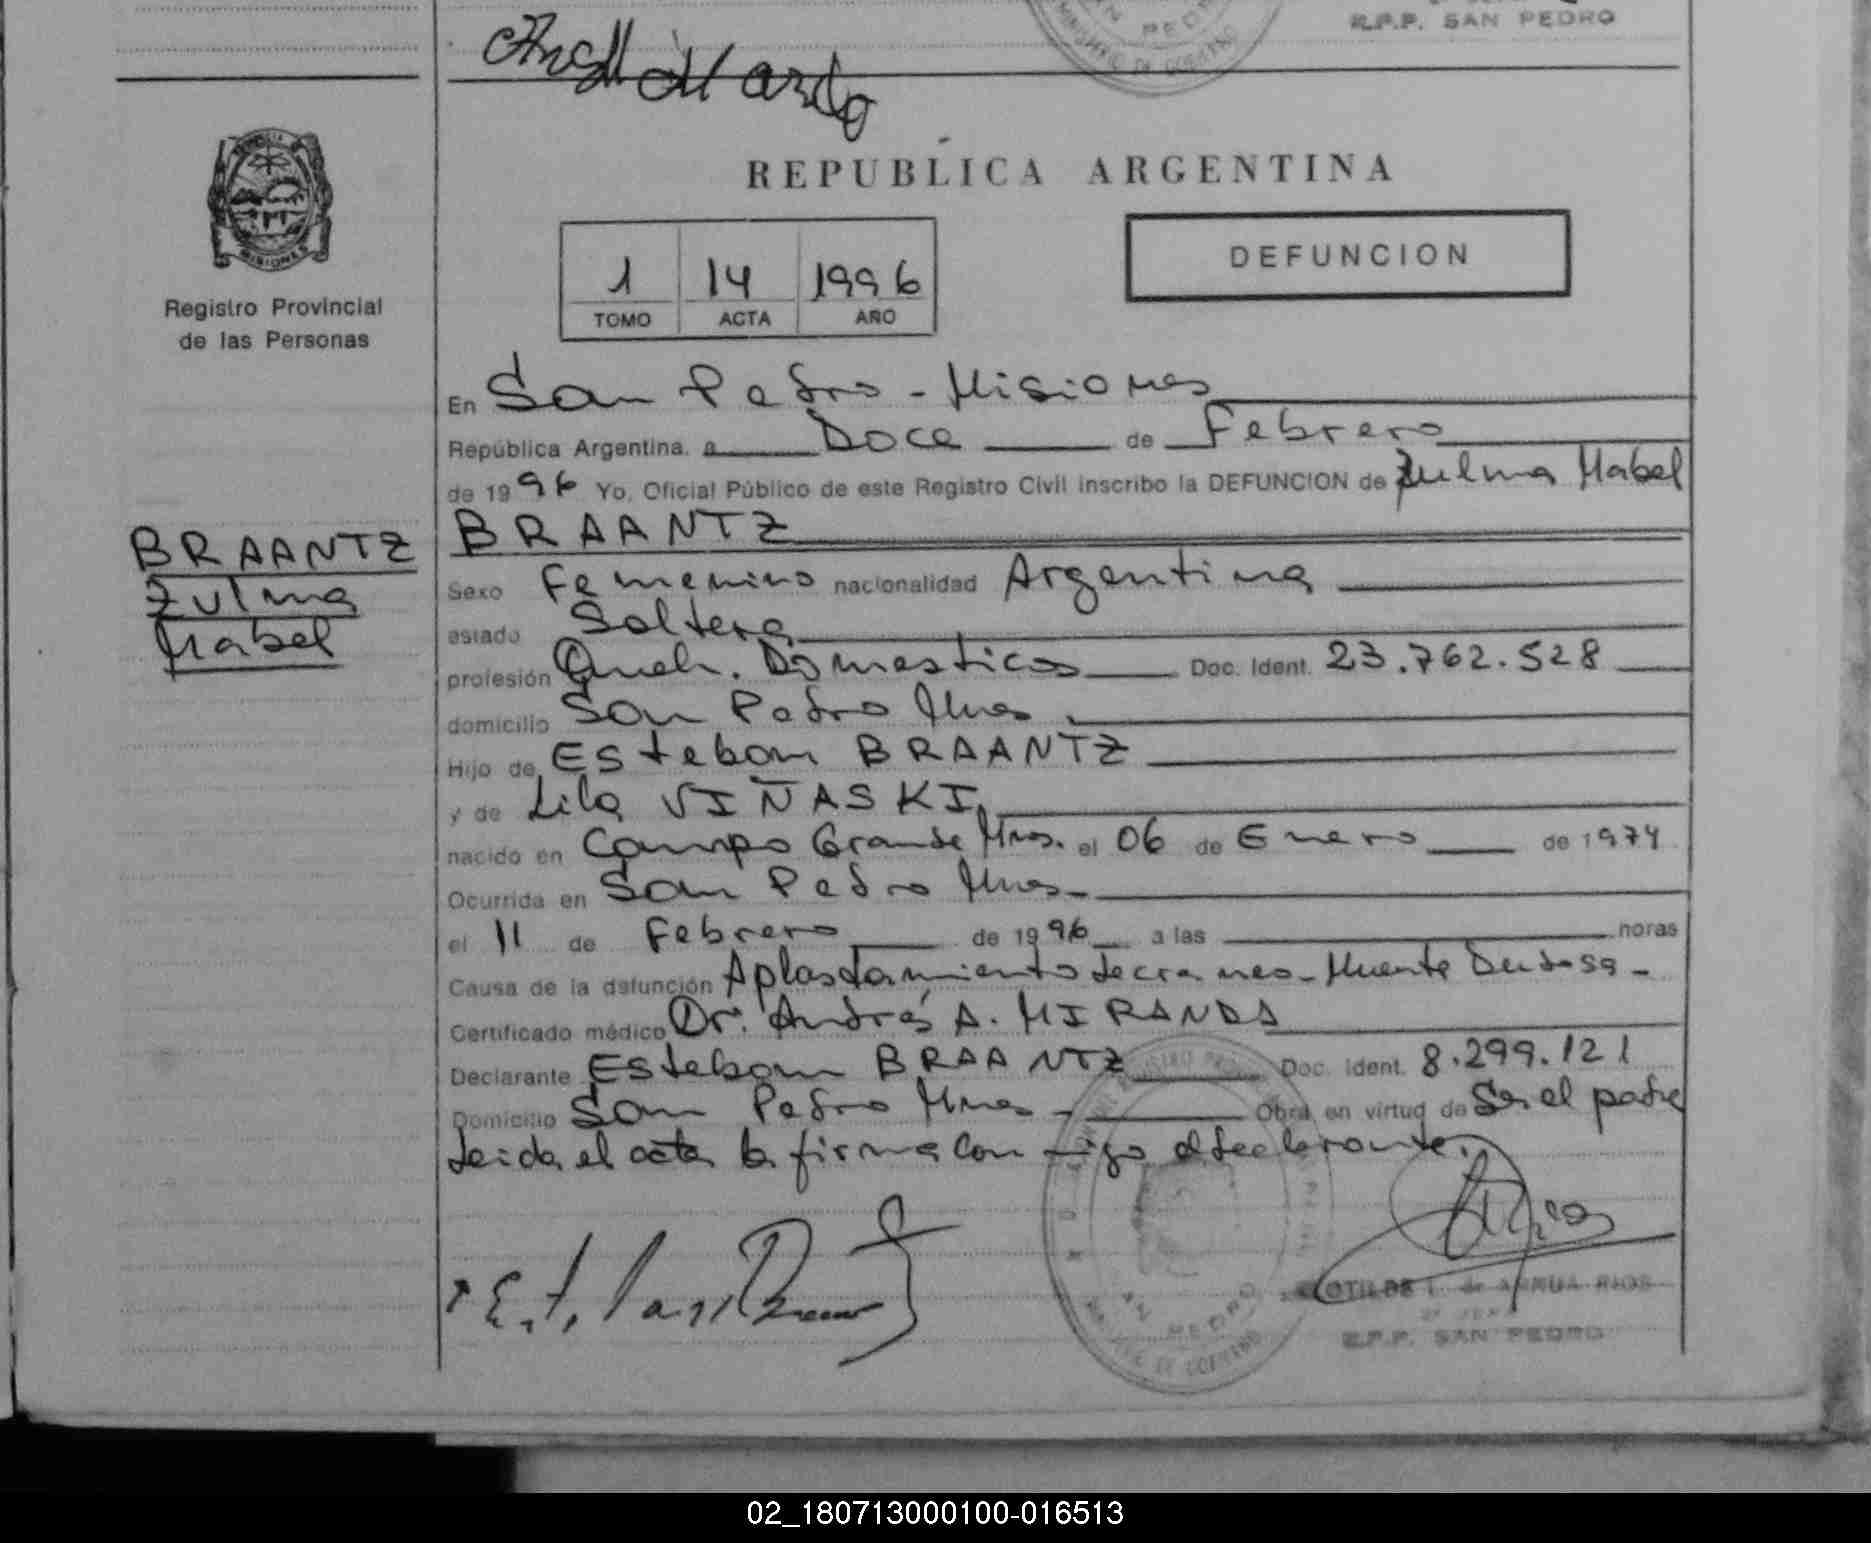 R.P.P. SAN PEDRO
SAN PEDRO
MINISTERIO DE GOBIERNO
REPUBLICA ARGENTINA
PROVINCIA DE MISIONES
Registro Provincial
de las Personas
1 14 1996
TOMO ACTA AÑO
DEFUNCION
En San Pedro - Misiones
República Argentina. a Doce de Febrero
de 1996 Yo, Oficial Público de este Registro Civil inscribo la DEFUNCION de Zulma Mabel
BRAANTZ
BRAANTZ
Zulma
Mabel
Sexo Femenino nacionalidad Argentina
estado Soltera
profesión Queh. Domesticos Doc. Ident. 23.762.528
domicilio San Pedro Mnes.
Hijo de Esteban BRAANTZ
y de Lila VIÑASKI
nacido en Campo Grande Mnes. el 06 de Enero de 1974
Ocurrida en San Pedro Mnes-
el 11 de Febrero de 1996 a las horas
Causa de la defunción Aplastamiento de craneo - Muerte Dudosa -
Certificado médico Dr. Andrés A. MIRANDA
Declarante Esteban BRAANTZ Doc. Ident. 8.299.121
Domicilio San Pedro Mnes - Obra en virtud de Ser el padre
Leida el acta la firma con migo el declarante.
SAN PEDRO
MINISTERIO DE GOBIERNO
CLOTILDE I. de ARRUA RIOS
R.P.P. SAN PEDRO
02_180713000100-016513